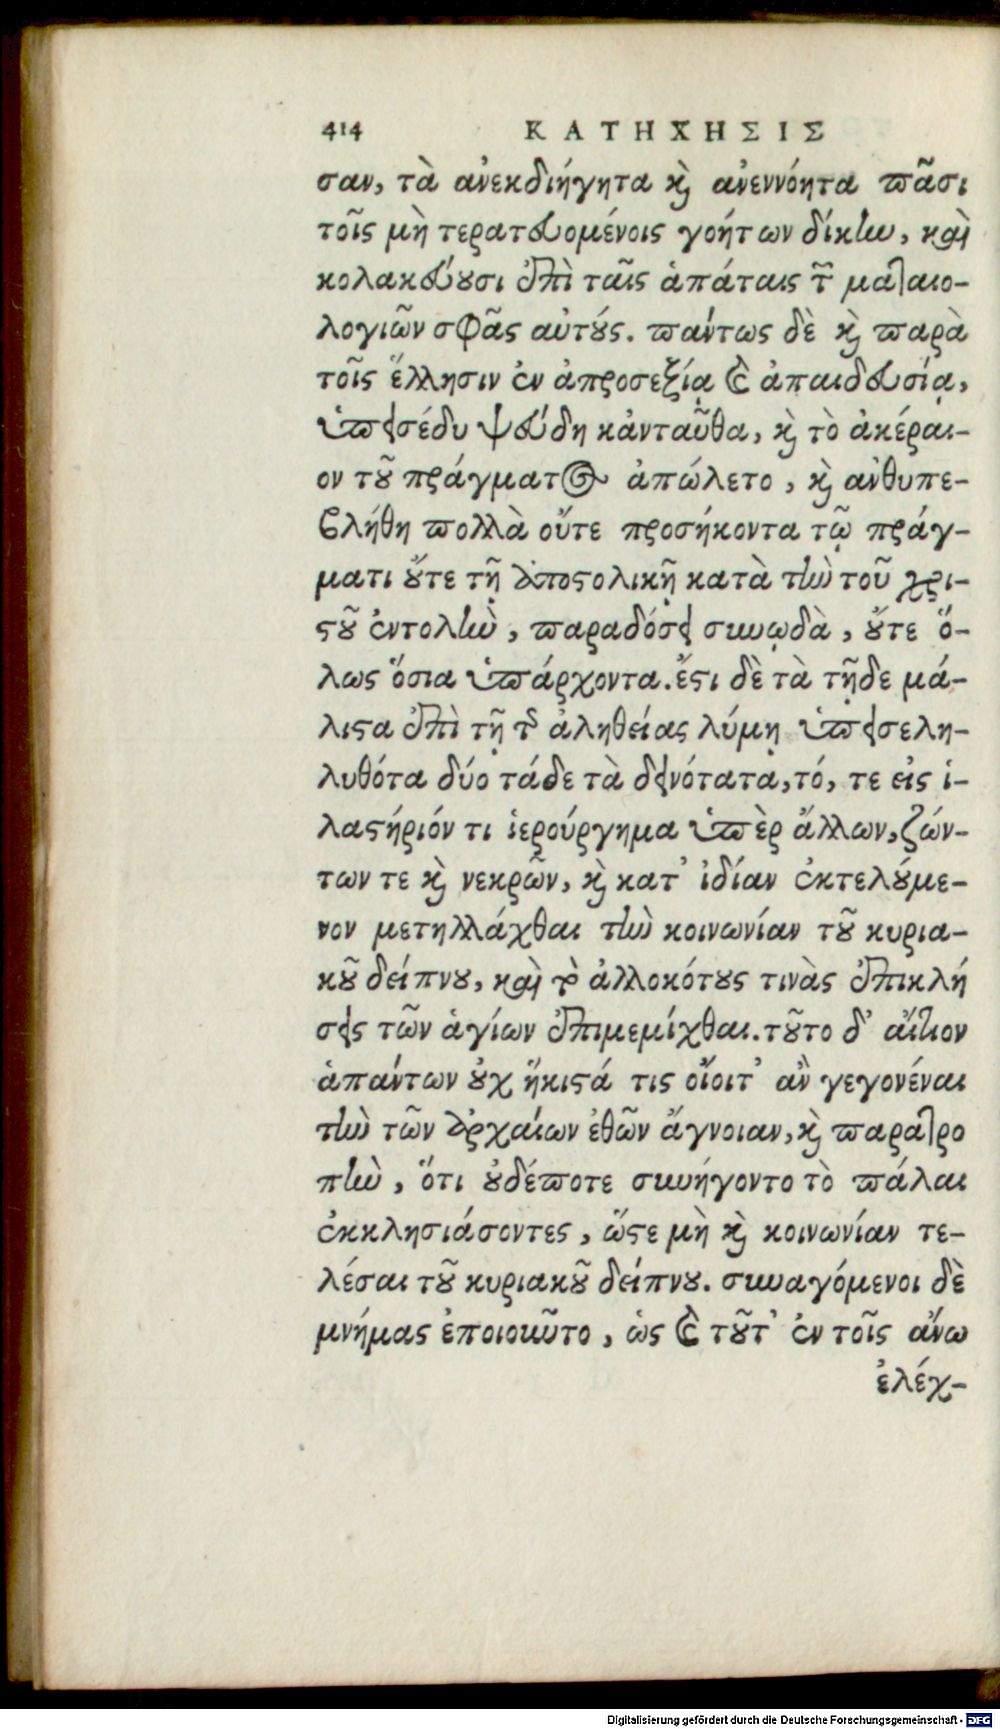 414 ΚΑΤΗΧΗΣΙΣ
σαν, τὰ ἀνεκδιήγητα καὶ ἀνεννόητα πᾶσι
τοῖς μὴ τερατευομένοις γοήτων δίκην, καὶ
κολακεύουσι ἐπὶ ταῖς ἀπάταις τῶν ματαιο-
λογιῶν σφᾶς αὐτούς. πάντως δὲ καὶ παρὰ
τοῖς ἕλλησιν ἐν ἀπροσεξίᾳ καὶ ἀπαιδευσίᾳ,
ὑπεισέδυ ψεύδη κἀνταῦθα, καὶ τὸ ἀκέραι-
ον τοῦ πράγματος ἀπώλετο, καὶ ἀνθυπε-
βλήθη πολλὰ οὔτε προσήκοντα τῷ πράγ-
ματι οὔτε τῇ ἀποστολικῇ κατὰ τὴν τοῦ χρι-
στοῦ ἐντολὴν, παραδόσει συνῳδὰ, οὔτε ὅ-
λως ὅσια ὑπάρχοντα. ἔστι δὲ τὰ τῇδε μά-
λιστα ἐπὶ τῇ τῆς ἀληθείας λύμῃ ὑπεισελη-
λυθότα δύο τάδε τὰ δεινότατα, τό, τε εἰς ἱ-
λαστήριόν τι ἱερούργημα ὑπὲρ ἄλλων, ζών-
των τε καὶ νεκρῶν, καὶ κατ' ἰδίαν ἐκτελούμε-
νον μετηλλάχθαι τὴν κοινωνίαν τοῦ κυρια-
κοῦ δείπνου, καὶ τὸ ἀλλοκότους τινὰς ἐπικλή
σεις τῶν ἁγίων ἐπιμεμίχθαι. τοῦτο δ' αἴτιον
ἁπάντων οὐχ ἥκιστά τις οἴοιτ' ἂν γεγονέναι
τὴν τῶν ἀρχαίων ἐθῶν ἄγνοιαν, καὶ παρατρο
πὴν, ὅτι οὐδέποτε συνήγοντο τὸ πάλαι
ἐκκλησιάσοντες, ὥστε μὴ καὶ κοινωνίαν τε-
λέσαι τοῦ κυριακοῦ δείπνου. συναγόμενοι δὲ
μνήμας ἐποιοῦντο, ὡς καὶ τοῦτ' ἐν τοῖς ἄνω
ἐλέχ-
Digitalisierung gefördert durch die Deutsche Forschungsgemeinschaft - DFG